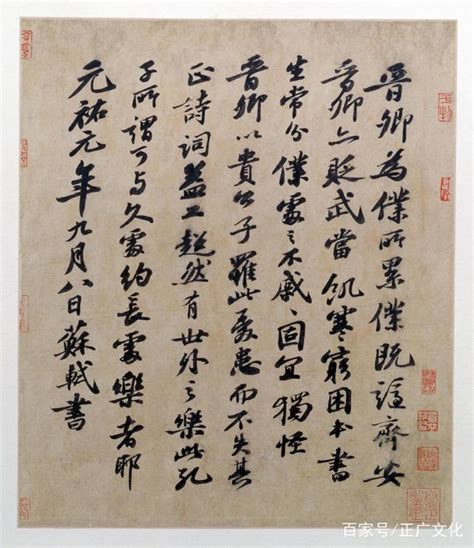 晉卿為僕所累僕既謫齊安
晉卿亦貶武當飢寒窮困本書
生常分僕處之不戚〻固宜獨怪
晉卿以貴公子罹此憂患而不失其
正詩詞益工超然有世外之樂此孔
子所謂可与久處約長處樂者耶
元祐元年九月八日蘇軾書
百家号/正广文化